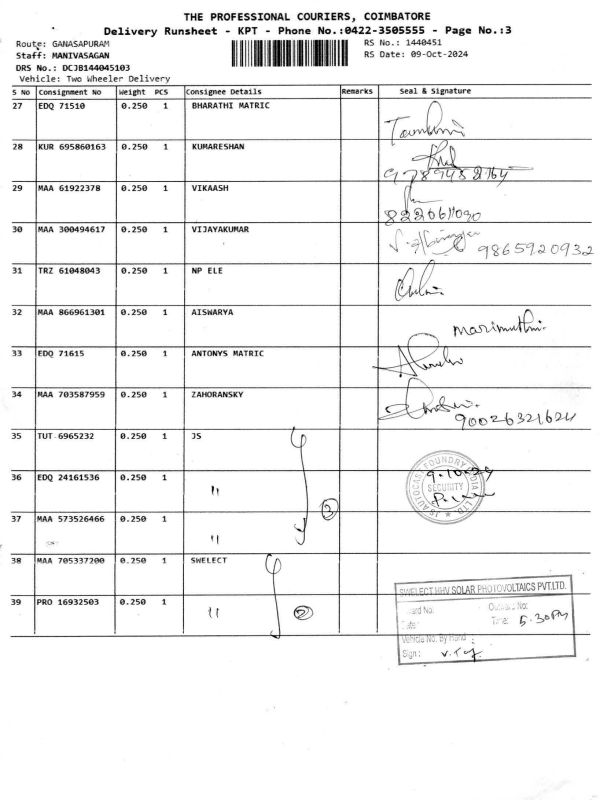 THE PROFESSIONAL COURIERS, COIMBATORE
Delivery Runsheet - KPT - Phone No.:0422-3505555 - Page No.:3
Route: GANASAPURAM RS No.: 1440451
Staff: MANIVASAGAN RS Date: 09-Oct-2024
DRS No.: DCJB144045103
Vehicle: Two Wheeler Delivery
S No Consignment No Weight PCS Consignee Details Remarks Seal & Signature
27 EDQ 71510 0.250 1 BHARATHI MATRIC
28 KUR 695860163 0.250 1 KUMARESHAN
9789452164
29 MAA 61922378 0.250 1 VIKAASH
8220611090
30 MAA 300494617 0.250 1 VIJAYAKUMAR
9865920932
31 TRZ 61048043 0.250 1 NP ELE
32 MAA 866961301 0.250 1 AISWARYA
marimuthu.
33 EDQ 71615 0.250 1 ANTONYS MATRIC
34 MAA 703587959 0.250 1 ZAHORANSKY
90026321624
35 TUT 6965232 0.250 1 JS
36 EDQ 24161536 0.250 1 "
9.10.24
JS AUTOCAST FOUNDRY INDIA LTD.
SECURITY
37 MAA 573526466 0.250 1 " 3
38 MAA 705337200 0.250 1 SWELECT
39 PRO 16932503 0.250 1 " 2
SWELECT HHV SOLAR PHOTOVOLTAICS PVT.LTD.
Inward No: Outward No:
Date: Time: 5.30PM
Vehicle No. By Hand
Sign: